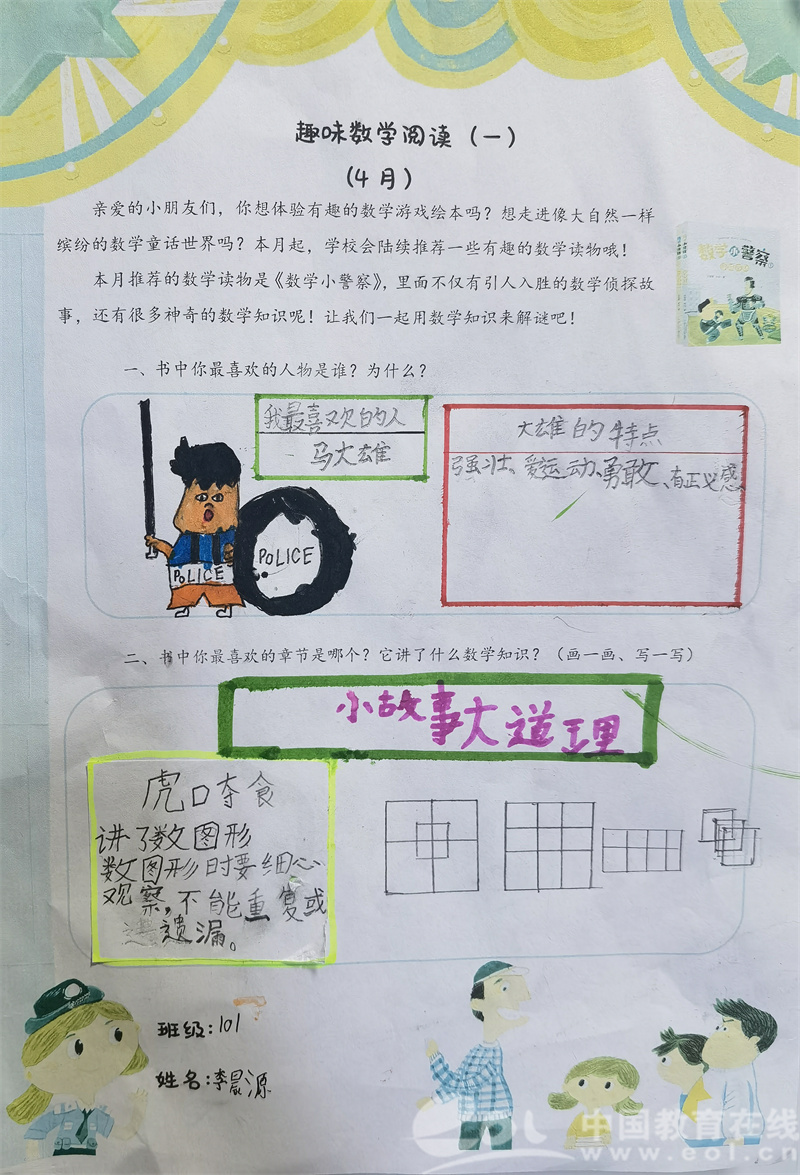 趣味数学阅读（一）
（4月）
亲爱的小朋友们，你想体验有趣的数学游戏绘本吗？想走进像大自然一样
缤纷的数学童话世界吗？本月起，学校会陆续推荐一些有趣的数学读物哦！
本月推荐的数学读物是《数学小警察》，里面不仅有引人入胜的数学侦探故
事，还有很多神奇的数学知识呢！让我们一起用数学知识来解谜吧！
数学小警察
一、书中你最喜欢的人物是谁？为什么？
我最喜欢的人
马大雄
大雄的特点
强壮、爱运动、勇敢、有正义感
POLICE
POLICE
二、书中你最喜欢的章节是哪个？它讲了什么数学知识？（画一画、写一写）
小故事大道理
虎口夺食
讲了数图形
数图形时要细心
观察，不能重复或
遗漏。
班级：101
姓名：李晨源
中国教育在线
www.eol.cn